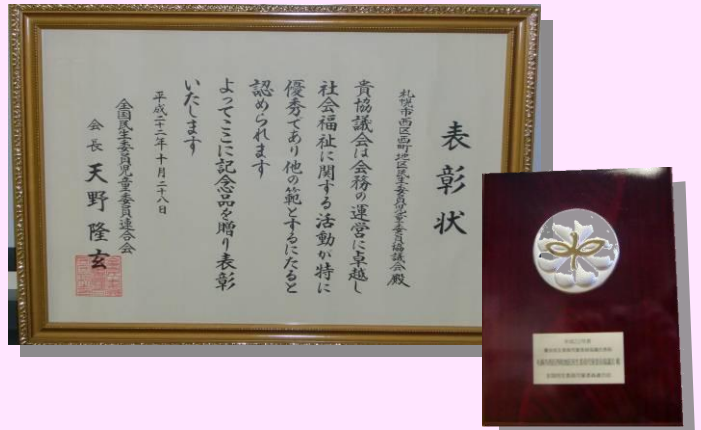 表彰状
札幌市西区西町地区民生委員児童委員協議会殿
貴協議会は会務の運営に卓越し
社会福祉に関する活動が特に
優秀であり他の範とするにたると
認められます
よってここに記念品を贈り表彰
いたします
平成二十二年十月二十八日
全国民生委員児童委員連合会
会長 天野隆玄